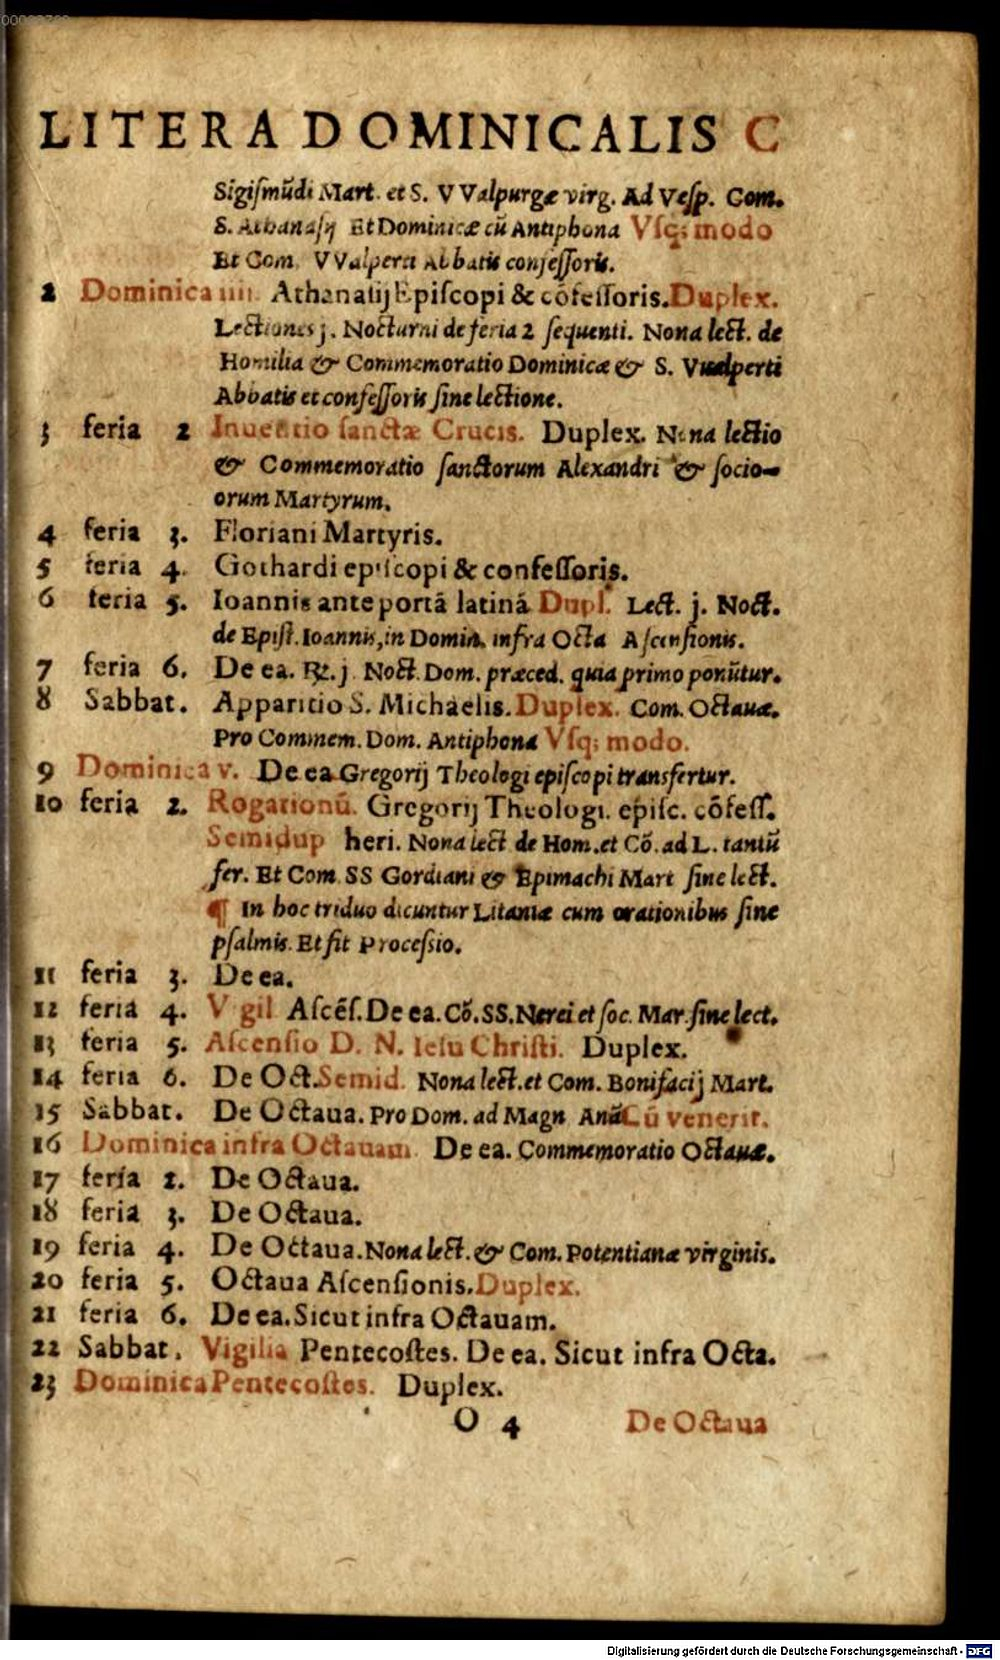 LITERA DOMINICALIS C
Sigiſmũdi Mart. et S. VValpurgæ virg. Ad Veſp. Com.
S. Athanaſij Et Dominicæ cũ Antiphona Vſq; modo
Et Com. VValperti Abbatis confeſſoris.
2 Dominica iiij. Athanasij Epiſcopi & cõfeſſoris. Duplex.
Lectiones j. Nocturni de feria 2 ſequenti. Nona lect. de
Homilia & Commemoratio Dominicæ & S. Vualperti
Abbatis et confeſſoris ſine lectione.
3 feria 2 Inuentio ſanctæ Crucis. Duplex. Nona lectio
& Commemoratio ſanctorum Alexandri & ſocio-
orum Martyrum.
4 feria 3. Floriani Martyris.
5 feria 4. Gothardi epiſcopi & confeſſoris.
6 feria 5. Ioannis ante portã latinã Dupl. Lect. j. Noct.
de Epiſt. Ioannis, in Domin. infra Octa Aſcenſionis.
7 feria 6. De ea. ℟. j Noct. Dom. præced. quia primo ponũtur.
8 Sabbat. Apparitio S. Michaelis. Duplex. Com. Octauæ.
Pro Commem. Dom. Antiphona Vſq; modo.
9 Dominica v. De ea Gregorij Theologi epiſcopi transfertur.
10 feria 2. Rogationũ. Gregorij Theologi. epiſc. cõfeſſ.
Semidup heri. Nona lect de Hom. et Cõ. ad L. tantũ
fer. Et Com SS Gordiani & Epimachi Mart ſine lect.
¶ In hoc triduo dicuntur Litaniæ cum orationibus ſine
pſalmis. Et fit Proceſsio.
11 feria 3. De ea.
12 feria 4. Vigil Aſcẽſ. De ea. Cõ. SS. Nerei et ſoc. Mar. ſine lect.
13 feria 5. Aſcenſio D. N. Ieſu Chriſti. Duplex.
14 feria 6. De Oct. Semid. Nona lect. et Com. Bonifacij Mart.
15 Sabbat. De Octaua. Pro Dom. ad Magn Anã Cũ venerit.
16 Dominica infra Octauam. De ea. Commemoratio Octauæ.
17 feria 2. De Octaua.
18 feria 3. De Octaua.
19 feria 4. De Octaua. Nona lect. & Com. Potentianæ virginis.
20 feria 5. Octaua Aſcenſionis. Duplex.
21 feria 6. De ea. Sicut infra Octauam.
22 Sabbat. Vigilia Pentecoſtes. De ea. Sicut infra Octa.
23 Dominica Pentecoſtes. Duplex.
O 4 De Octaua
Digitalisierung gefördert durch die Deutsche Forschungsgemeinschaft - DFG